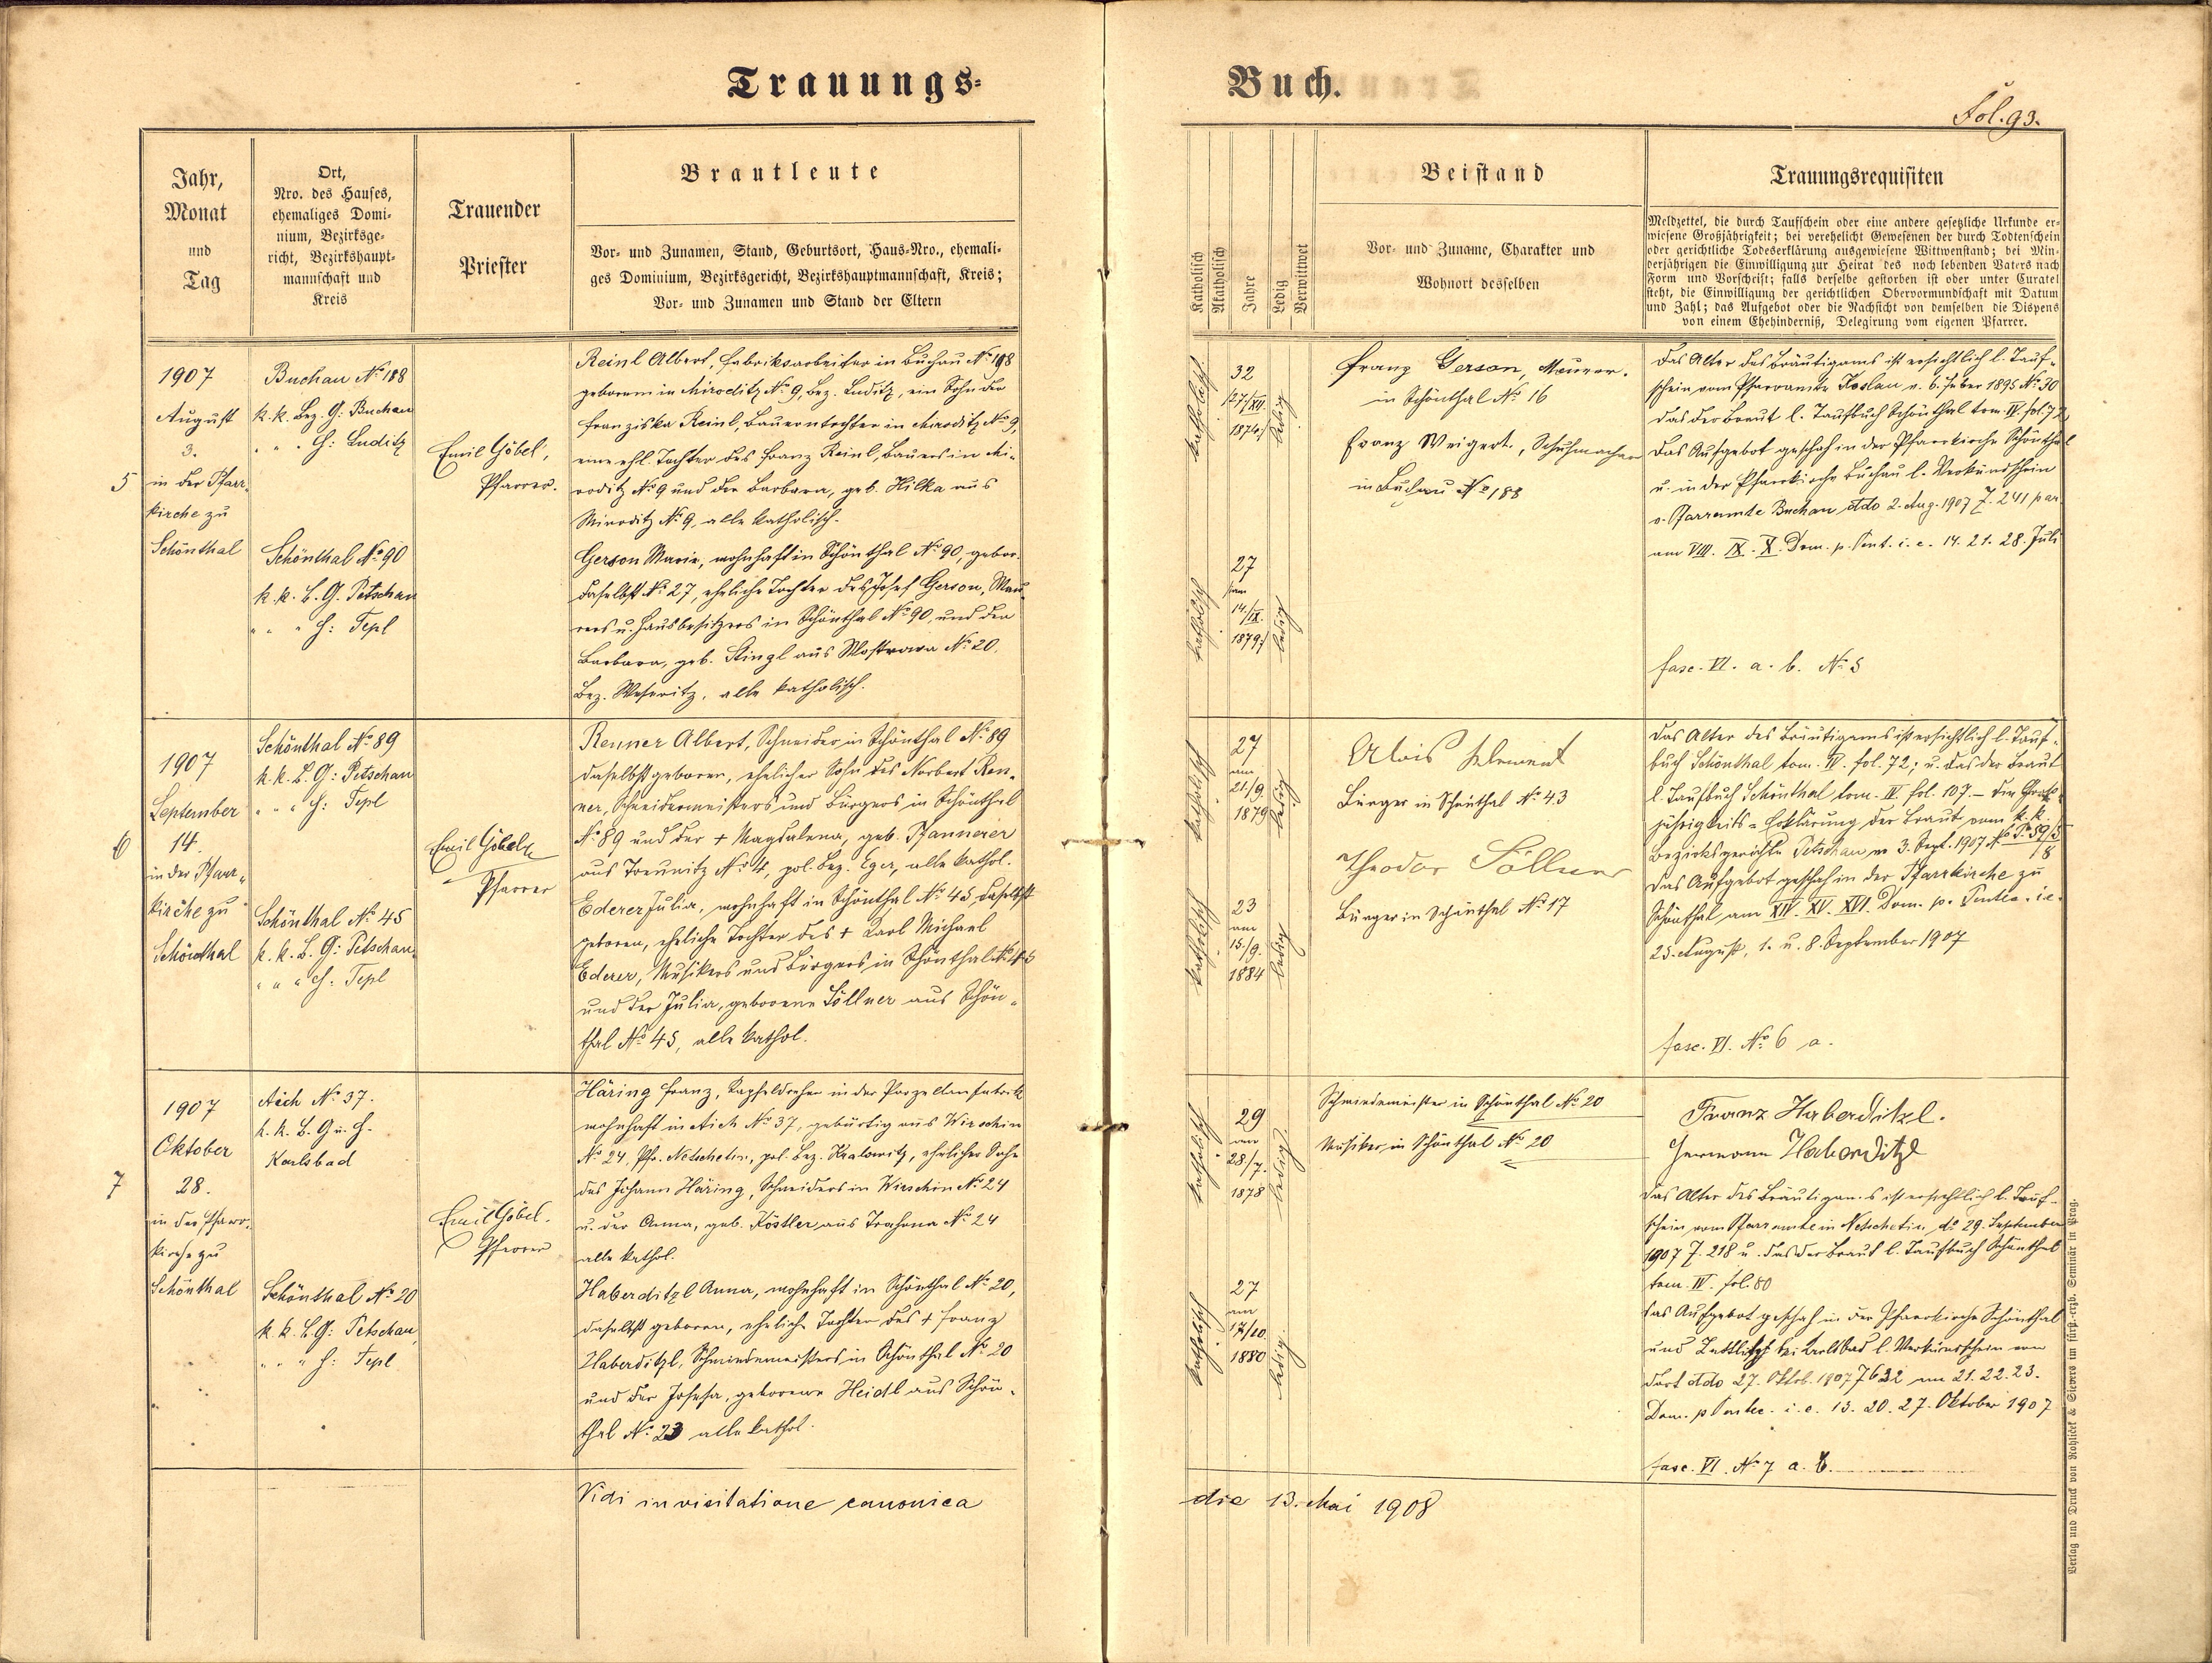 Trauungs-
Buch.
Fol. 93.
Jahr,
Monat
und
Tag
Ort,
Nro. des Hauses,
ehemaliges Domi-
nium, Bezirksge-
richt, Bezirkshaupt-
mannschaft und
Kreis
Trauender
Priester
Brautleute
Vor- und Zunamen, Stand, Geburtsort, Haus-Nro., ehemali-
ges Dominium, Bezirksgericht, Bezirkshauptmannschaft, Kreis;
Vor- und Zunamen und Stand der Eltern
Katholisch
Akatholisch
Jahre
Ledig
Verwittwet
Beistand
Vor- und Zuname, Charakter und
Wohnort desselben
Trauungsrequisiten
Meldzettel, die durch Taufschein oder eine andere gesetzliche Urkunde er-
wiesene Großjährigkeit; bei verehelicht Gewesenen der durch Todtenschein
oder gerichtliche Todeserklärung ausgewiesene Wittwenstand; bei Min-
derjährigen die Einwilligung zur Heirat des noch lebenden Vaters nach
Form und Vorschrift; falls derselbe gestorben ist oder unter Curatel
steht, die Einwilligung der gerichtlichen Obervormundschaft mit Datum
und Zahl; das Aufgebot oder die Nachsicht von demselben die Dispens
von einem Ehehinderniß, Delegirung vom eigenen Pfarrer.
5
1907
August
3.
in der Pfarr-
kirche zu
Schönthal
Buchau No 188
k. k. Bez. G: Buchau
" " " H: Luditz
Schönthal No 90
k. k. B. G. Petschau
" " " H: Tepl
Emil Göbel,
Pfarrer.
Reinl Albert, Fabriksarbeiter in Buchau No 188
geboren in Miroditz No 9, Bez. Luditz, ein Sohn der
Franziska Reinl, Bauerntochter in Miroditz No 9
eine ehl. Tochter des Franz Reinl, Bauers in Mi-
roditz No 9 und der Barbara, geb. Hilka aus
Miroditz No 9, alle katholisch.
Gerson Marie, wohnhaft in Schönthal No 90, gebor.
daselbst No 27, eheliche Tochter des Josef Gerson, Mau-
rers u. Hausbesitzers in Schönthal No 90, und der
Barbara, geb. Stingl aus No 20,
Bez. Weseritz, alle katholisch.
katholisch
32
27/XII.
1874
ledig
katholisch
27
14./IX.
1879
ledig
Franz Gerson, Maurer.
in Schönthal No 16
Franz Weigert, Schuhmacher
in Buchau No 188
Das Alter des Bräutigams ist ersichtlich l. Tauf-
schein vom Pfarramte 1895 No 30
das der Braut l. Taufbuch Schönthal tom IV. fol. 72
Das Aufgebot geschah in der Pfarrkirche Schönthal
u. in der Pfarrkirche Buchau l. Verkündschein
v. Pfarramte Buchau ddo 2. Aug. 1907 Z. 241 par
am VIII. IX. X. Dom. p. Pent. i. e. 14. 21. 28. Juli
fasc. VI. a. b. No 5
6
1907
September
14.
in der Pfarr-
kirche zu
Schönthal
Schönthal No 89
k. k. B. G: Petschau
" " " H: Tepl
Schönthal No 45
k. k. B. G: Petschau
" " " H: Tepl
Emil Göbel
Pfarrer
Renner Albert, Schneider in Schönthal No 89
daselbst geboren, ehelicher Sohn des Norbert Ren-
ner, Schneidermeisters und Bürgers in Schönthal
No 89 und der + Magdalena, geb. Pfannerer
aus Treunitz No 4, pol. Bez. Eger, alle kathol.
Ederer Julia, wohnhaft in Schönthal No 45 daselbst
geboren, eheliche Tochter des + Karl Michael
Ederer, Musikers und Bürgers in Schönthal No 45
und der Julia, geborene Söllner aus Schön-
thal No 45, alle kathol.
katholisch
27
am
21./9.
1879
ledig
katholisch
23
am
15./9.
1884
ledig
Alois Klement
Bürger in Schönthal No 43
Theodor Söllner
Bürger in Schönthal No 17
Das Alter des Bräutigams ist ersichtlich l. Tauf-
buch Schönthal tom. IV. fol. 72; u. das der Braut
l. Taufbuch Schönthal tom. IV. fol. 107. – Die Groß-
jährigkeits-Erklärung der Braut vom k. k.
Bezirksgerichte Petschau v. 3. Sept. 1907 No P 59/3
/8
Das Aufgebot geschah in der Pfarrkirche zu
Schönthal am XIV. XV. XVI. Dom. p. Pentec. i. e.
25. August, 1. u. 8. September 1907
fasc. VI. No 6 a.
7
1907
Oktober
28.
in der Pfarr-
kirche zu
Schönthal
Aich No 37.
k. k. B. G u. H.
Karlsbad
Schönthal No 20
k. k. B. G: Petschau
" " " H: Tepl
Emil Göbel.
Pfarrer
Häring Franz, Kapseldreher in der Porzellanfabrik
wohnhaft in Aich No 37, gebürtig aus Wirschin
No 24, Pfr. Netschetin, pol. Bez. Kralowitz, ehelicher Sohn
des Johann Häring, Schneiders in Wirschin No 24
u. der Anna, geb. Köstler aus Trahona No 24
alle kathol.
Haberditzl Anna, wohnhaft in Schönthal No 20,
daselbst geboren, eheliche Tochter des + Franz
Haberditzl, Schmiedemeisters in Schönthal No 20
und der Josefa, geborene Heidl aus Schön-
thal No 23 alle kathol.
katholisch
29
am
28/7.
1878
ledig
katholisch
27
am
17/10.
1880
ledig
Schmiedemeister in Schönthal No 20
Musiker in Schönthal No 20
Franz Haberditzl.
Hermann Haberditzl
Das Alter des Bräutigams ist ersichtlich l. Tauf-
schein vom Pfarramte in Netschetin, do 29. September
1907 Z. 218 u. das der Braut l. Taufbuch Schönthal
tom. IV. fol. 80
Das Aufgebot geschah in der Pfarrkirche Schönthal
und bei Karlsbad l. Verkündschein von
dort ddo 27. Oktob. 1907 Z 632 am 21. 22. 23.
Dom. p Pentec. i. e. 13. 20. 27. Oktober 1907
fasc. VI. No 7 a. b.
Vidi in visitatione canonica
die 13. Mai 1908
Verlag und Druck von Rohliček & Sievers im fürst.-erzb. Seminär in Prag.